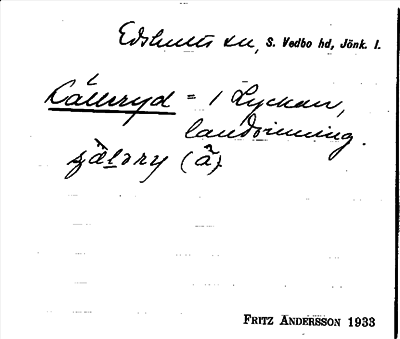 Edshults sn, S. Vedbo hd, Jönk. l.
Källeryd = 1 Lyckan,
landvinning.
(ä).
FRITZ ANDERSSON 1933